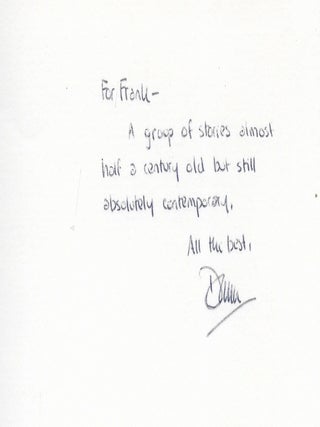 For Frank-
A group of stories almost
half a century old but still
absolutely contemporary.
All the best,